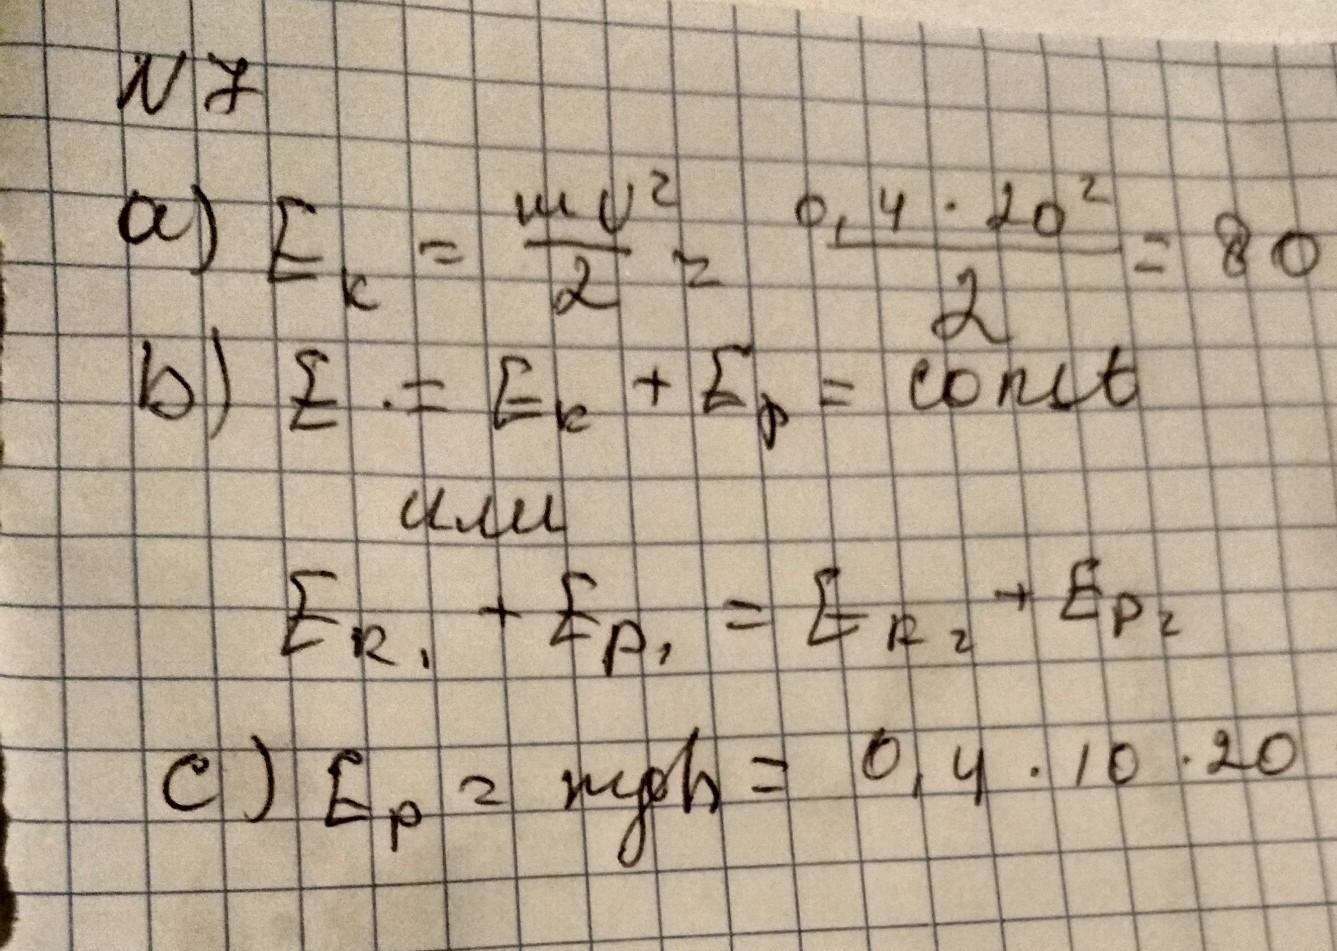 N 7
a) E_k = mv²/2 = 0,4 · 20²/2 = 80
b) E = E_k + E_p = const
или
E_k₁ + E_p₁ = E_k₂ + E_p₂
c) E_p = mgh = 0,4 · 10 · 20